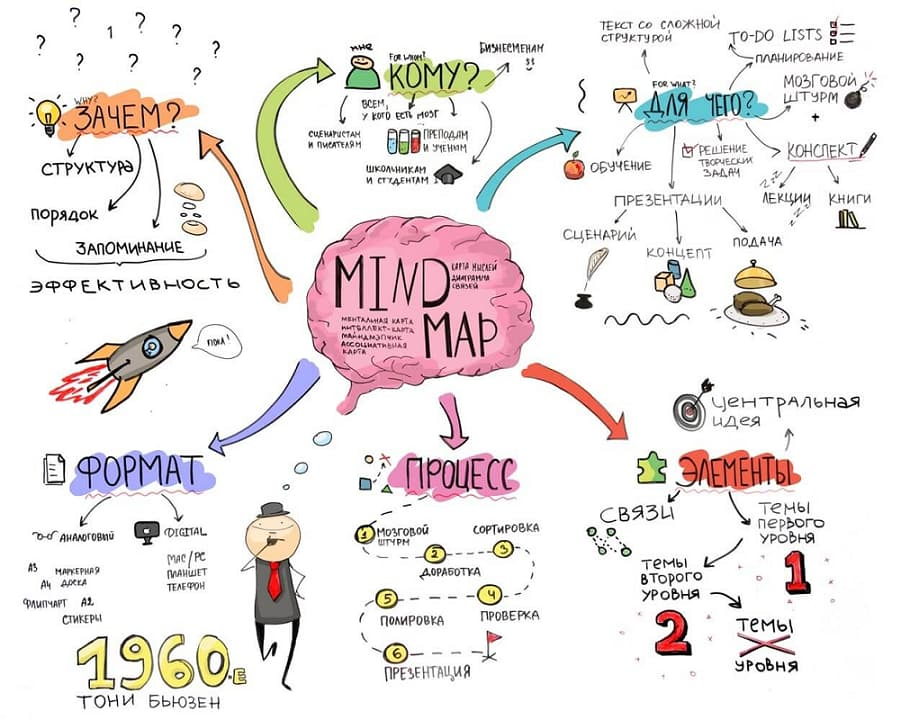 MIND
MAP
КАРТА МЫСЛЕЙ
ДИАГРАММА
СВЯЗЕЙ
МЕНТАЛЬНАЯ КАРТА
ИНТЕЛЛЕКТ-КАРТА
МАЙНДМЭПЧИК
АССОЦИАТИВНАЯ
КАРТА
? ? 1 ? ? ? ? ?
WHY?
ЗАЧЕМ?
СТРУКТУРА
ПОРЯДОК
ЗАПОМИНАНИЕ
ЭФФЕКТИВНОСТЬ
ПОКА!
МНЕ
FOR WHOM?
КОМУ?
БИЗНЕСМЕНАМ
$$
ВСЕМ,
У КОГО ЕСТЬ МОЗГ
СЦЕНАРИСТАМ
И ПИСАТЕЛЯМ
ПРЕПОДАМ
И УЧЕНЫМ
ШКОЛЬНИКАМ
И СТУДЕНТАМ
FOR WHAT?
ДЛЯ ЧЕГО?
ТЕКСТ СО СЛОЖНОЙ
СТРУКТУРОЙ
TO-DO LISTS
ПЛАНИРОВАНИЕ
МОЗГОВОЙ
ШТУРМ
+
КОНСПЕКТ
ЛЕКЦИИ
ZZZ
ZZZ
КНИГИ
РЕШЕНИЕ
ТВОРЧЕСКИХ
ЗАДАЧ
ОБУЧЕНИЕ
ПРЕЗЕНТАЦИИ
СЦЕНАРИЙ
КОНЦЕПТ
ПОДАЧА
ФОРМАТ
АНАЛОГОВЫЙ
А3
МАРКЕРНАЯ
ДОСКА
А4
ФЛИПЧАРТ
А2
СТИКЕРЫ
DIGITAL
MAC/PC
ПЛАНШЕТ
ТЕЛЕФОН
1960.Е
ТОНИ БЬЮЗЕН
ПРОЦЕСС
1 МОЗГОВОЙ
ШТУРМ
2
ДОРАБОТКА
СОРТИРОВКА
3
4
ПРОВЕРКА
5
ПОЛИРОВКА
6
ПРЕЗЕНТАЦИЯ
ЭЛЕМЕНТЫ
ЦЕНТРАЛЬНАЯ
ИДЕЯ
СВЯЗИ
ТЕМЫ
ПЕРВОГО
УРОВНЯ
1
ТЕМЫ
ВТОРОГО
УРОВНЯ
2
ТЕМЫ
X
УРОВНЯ